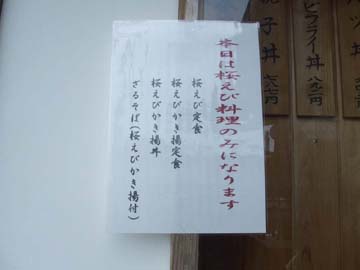 本日は桜えび料理のみになります
桜えび定食
桜えびかき揚定食
桜えびかき揚丼
ざるそば(桜えびかき揚付)